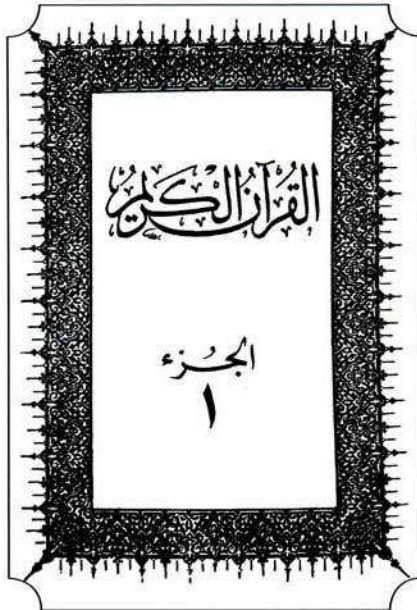 القُرآنُ الْكَرِيمُ
الجُزء
١